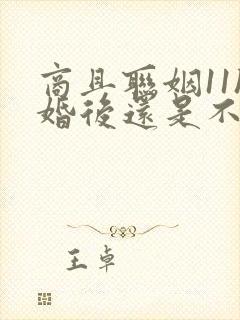 商且聯姻11
婚後還是不
王卓